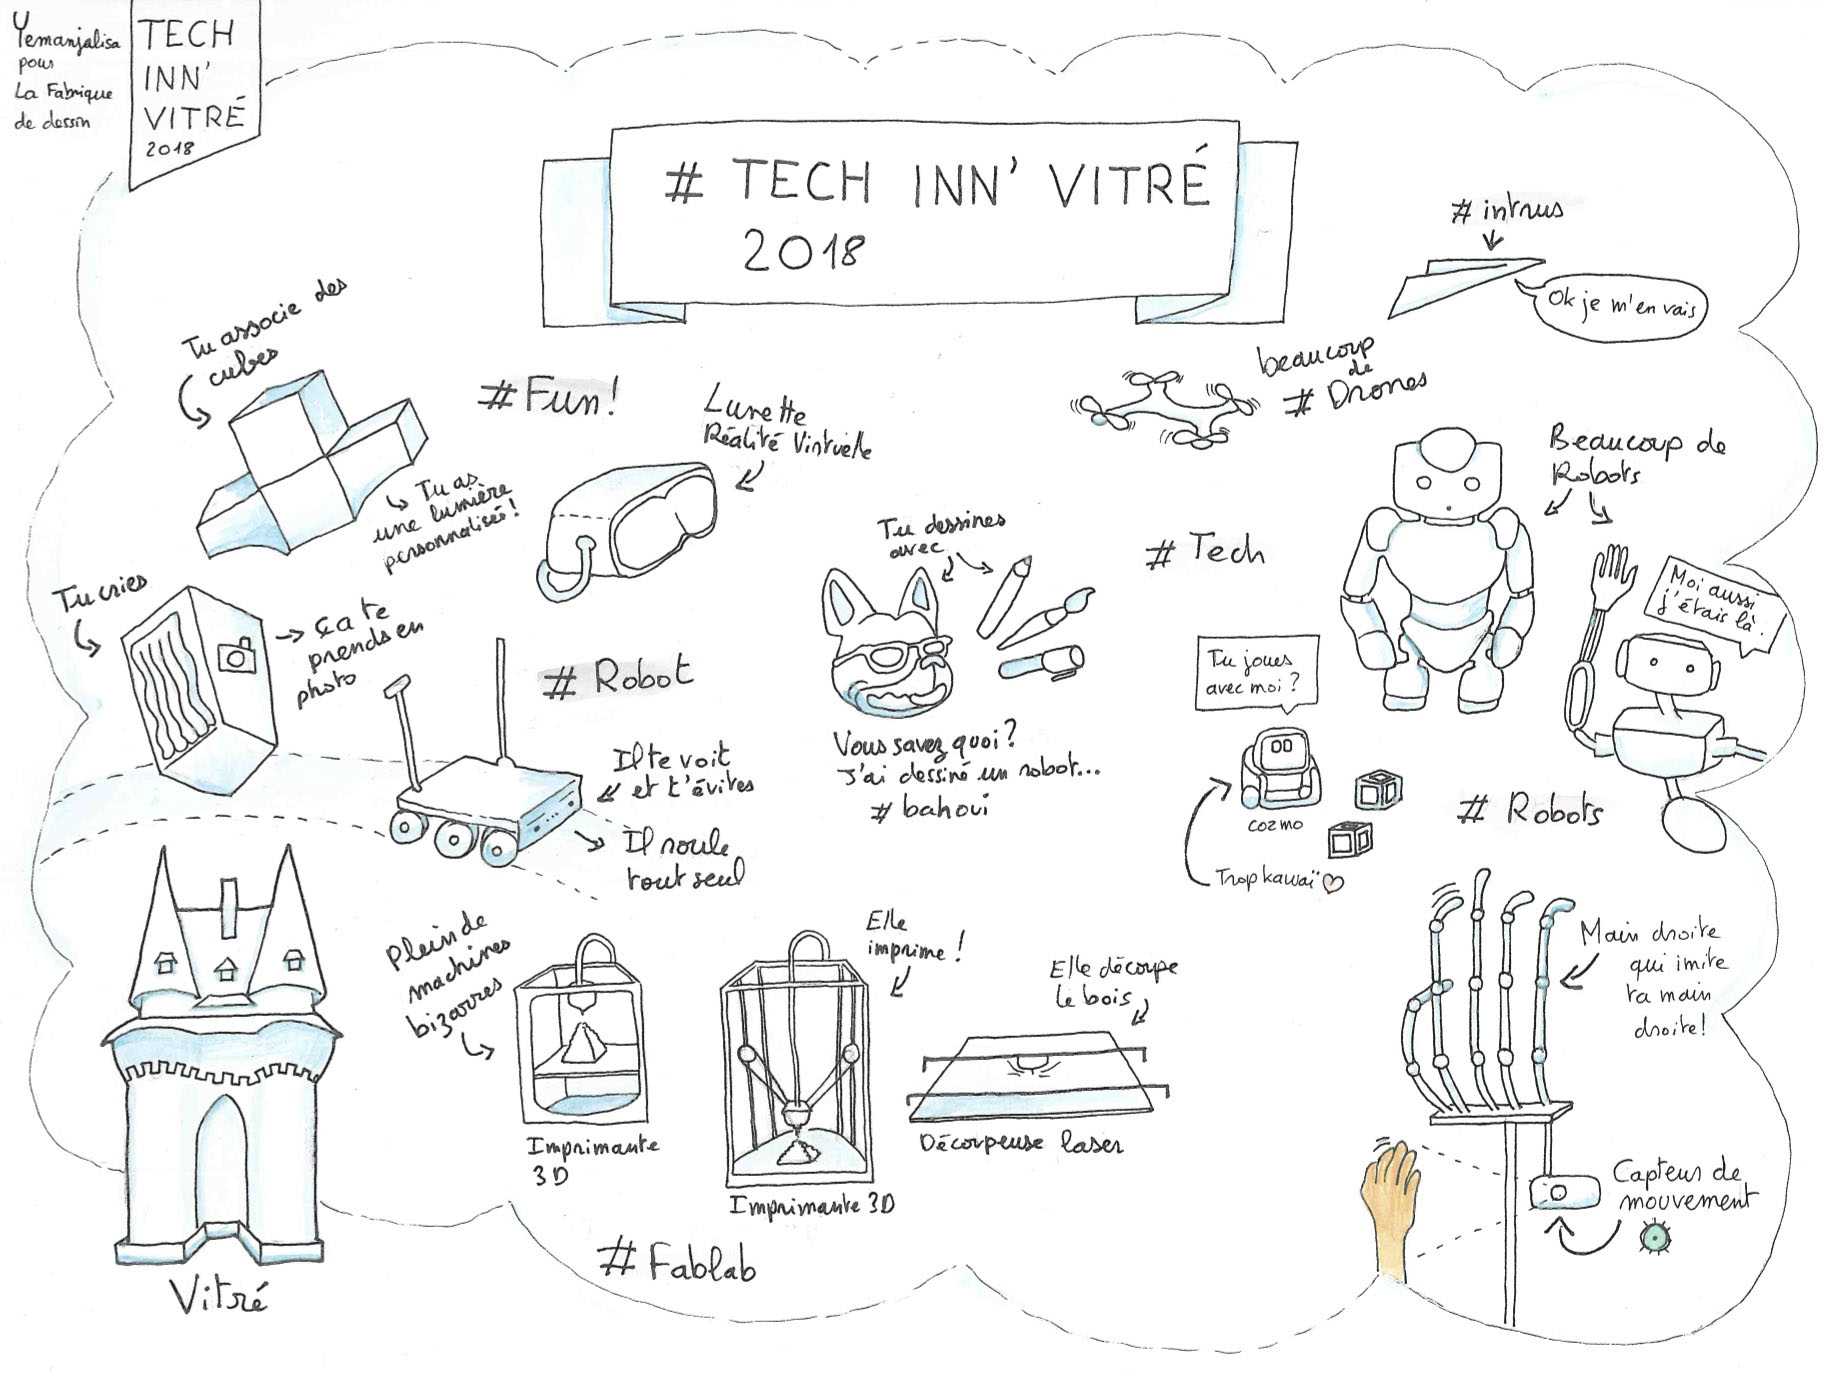 Yemanjalisa
pour
La Fabrique
de dessin
TECH
INN'
VITRÉ
2018
# TECH INN' VITRÉ
2018
# intrus
Ok je m'en vais
Tu associe des
cubes
Tu as
une lumière
personnalisée!
# Fun!
Lunette
Réalité Virtuelle
beaucoup
de
# Drones
Beaucoup de
Robots
Tu dessines
avec
# Tech
Moi aussi
j'étais là!
Tu cries
ça te
prends en
photo
# Robot
Il te voit
et t'évites
Il roule
tout seul
Vous savez quoi?
J'ai dessiné un robot...
# bahoui
Tu joues
avec moi?
cozmo
Trop kawaï
# Robots
Plein de
machines
bizarres
Elle
imprime!
Elle découpe
le bois
Main droite
qui imite
ta main
droite!
Imprimante
3D
Imprimante 3D
Découpeuse laser
Capteur de
mouvement
# Fablab
Vitré